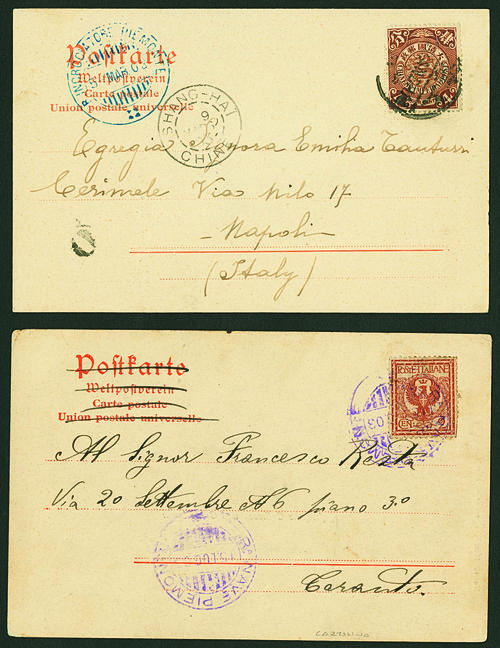 Postkarte
Weltpostverein
Carte postale
Union postale universelle
R. INCROCIATORE PIEMONTE
MAR 03
SHANG-HAI
CHINE
Egregia Signora Emilia Tauturri
Cerimele Via Nilo 17
- Napoli -
(Italy)
Postkarte
Weltpostverein
Carte postale
Union postale universelle
POSTE ITALIANE
03
Al Signor Francesco Resta
Via 20 Settembre No 6 piano 3.o
NAVE PIEMONTE
Taranto.